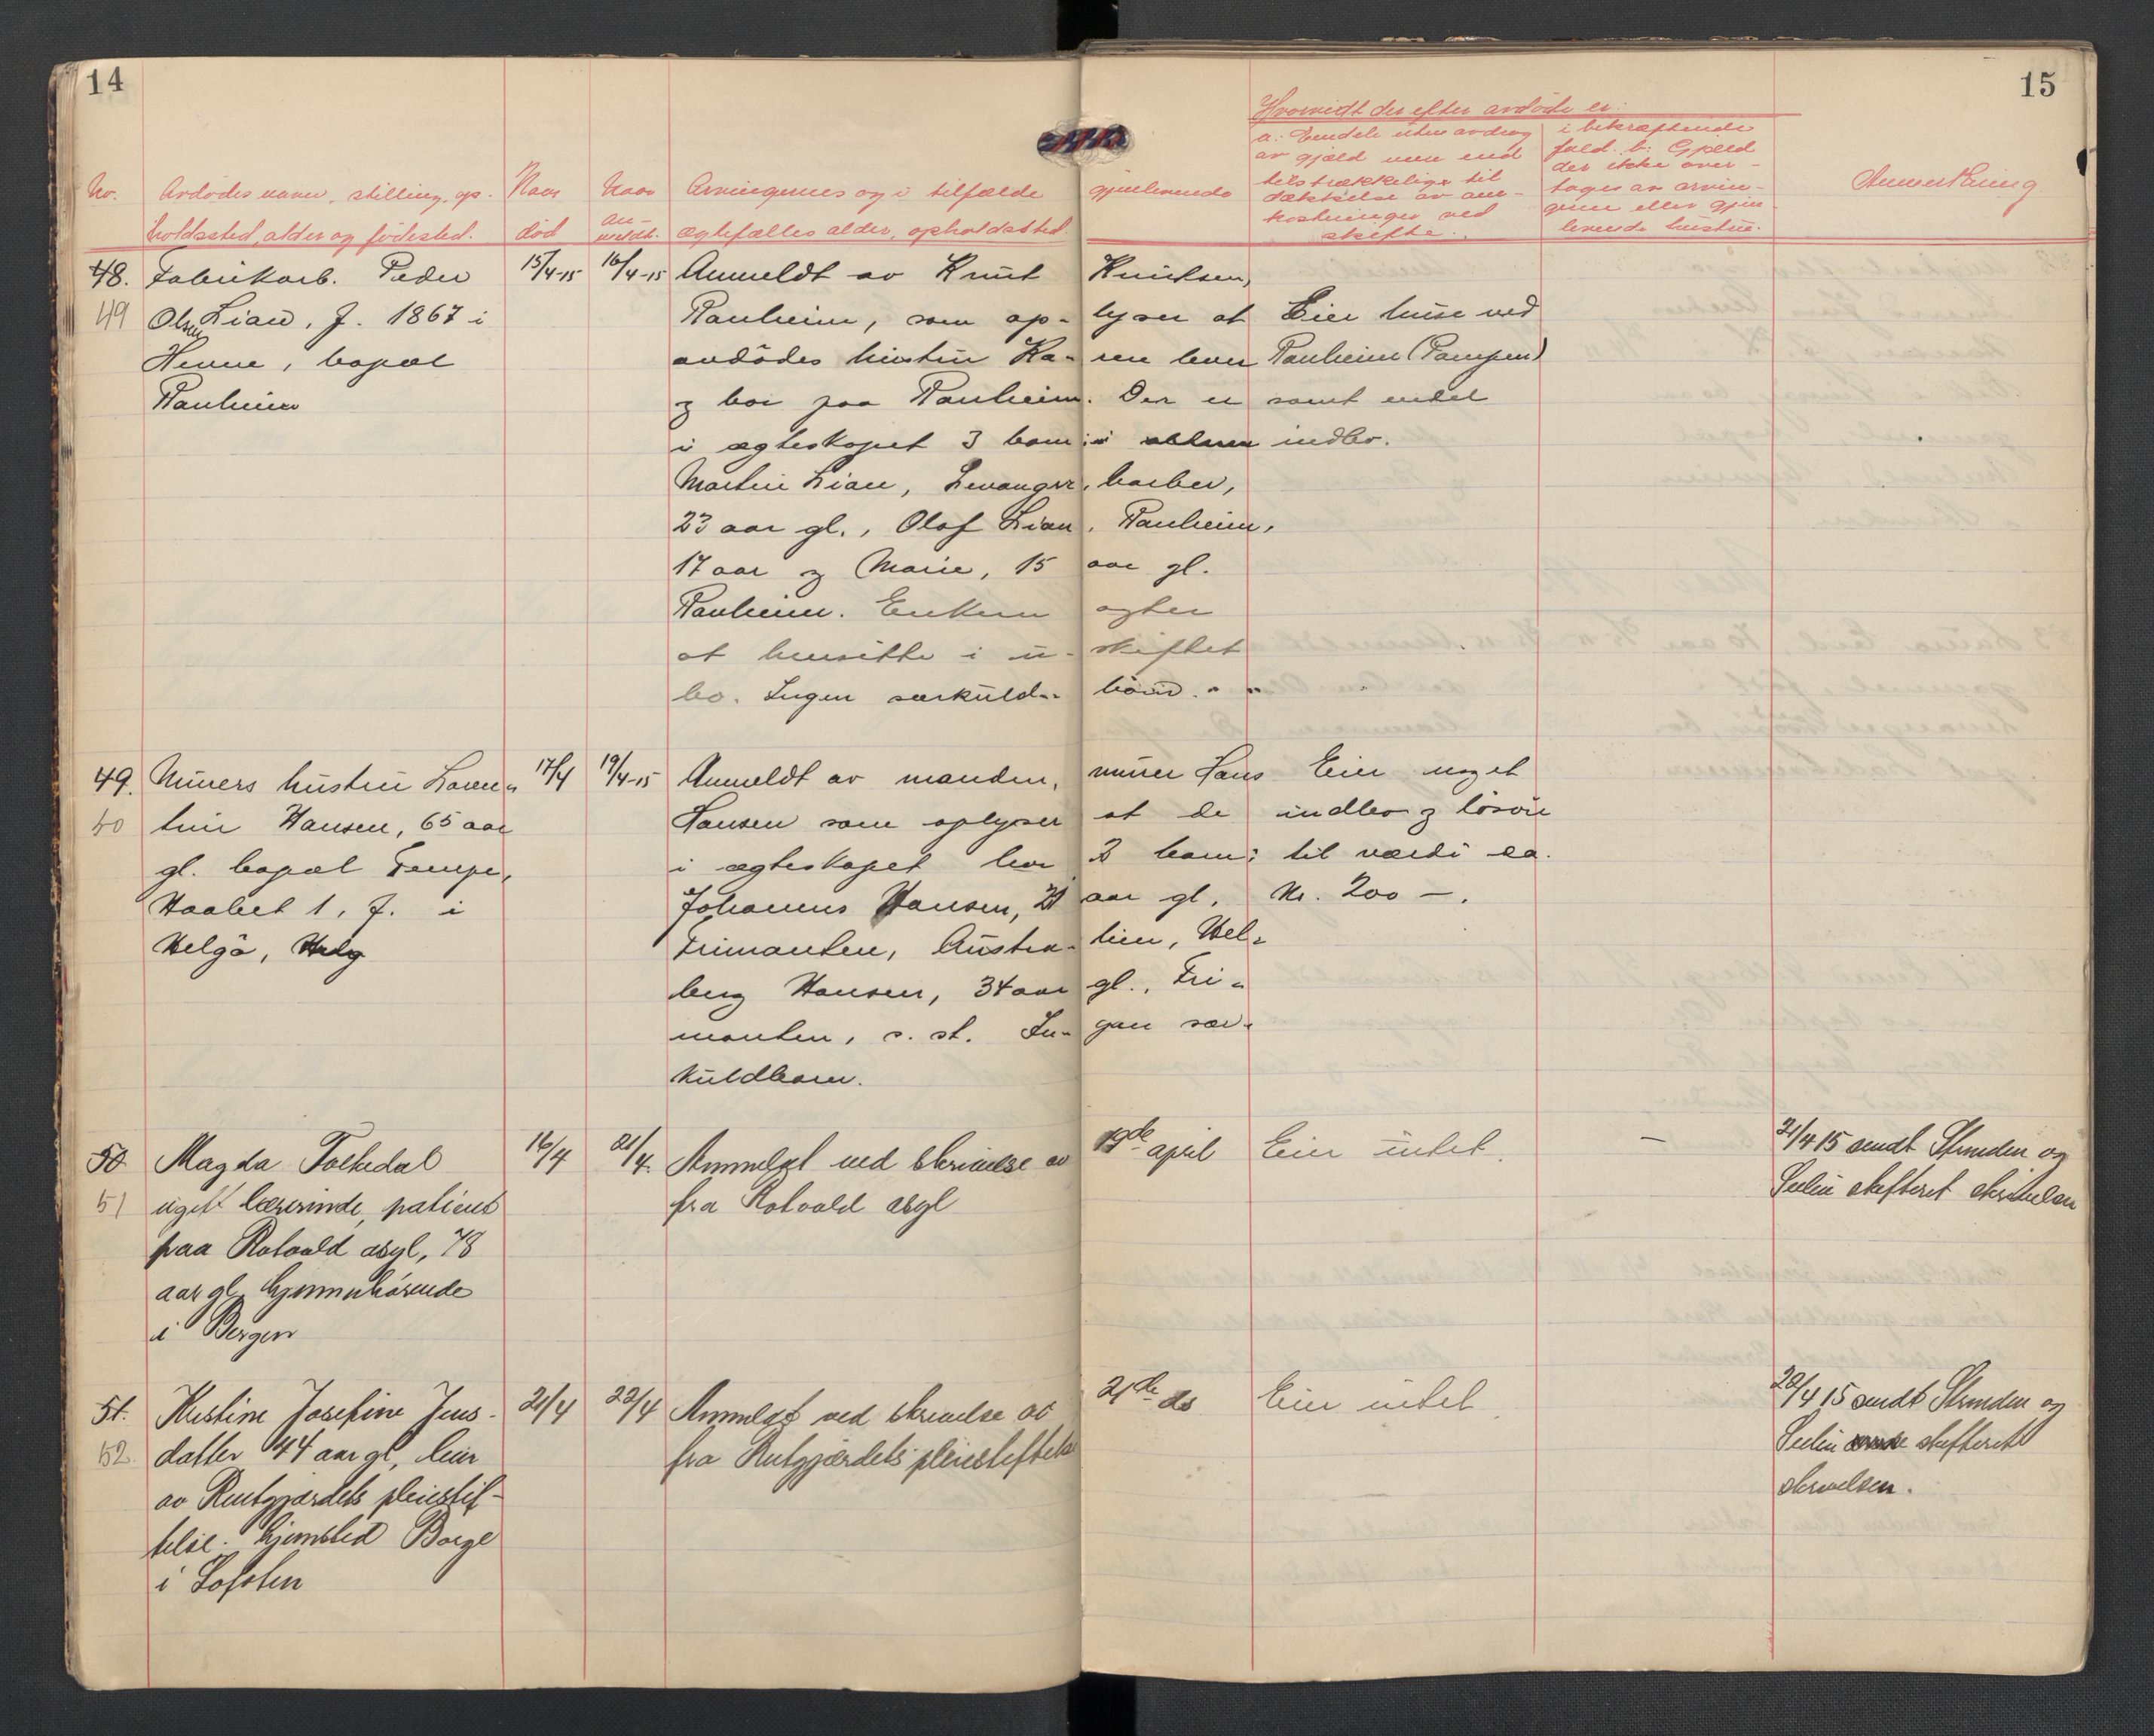 14
15
Hvorvidt der efter avdøde er:
No. Avdødes navn, stilling, op-
holdssted, alder og fødested.
Naar
død
Naar
an-
meldt.
Arvingernes og i tilfælde gjenlevende
ægtefælles alder, opholdssted.
a: Eiendele uten avdrag
av gjæld men end
tilstrækkelige til
dækkelse av om-
kostninger ved
skifte.
i bekræftende
fald. b: Gjæld
der ikke over-
tages av arvin-
gerne eller gjen
levende hustru.
Anmerkning
48. Fabrikarb. Peder
49 Olsen Lian, f. 1867 i
Henne, bopæl
Ranheim
15/4 15
16/4-15
Anmeldt av Knut Knudsen,
Ranheim, som op- lyser at
avdødes hustru Ka- ren lever
og bor paa Ranheim. Der er
i ægteskapet 3 barn:
Martin Lian, Levanger, barber,
23 aar gl., Olaf Lian, Ranheim,
17 aar og Marie, 15 aar gl.
Ranheim. Enken agter
at hensitte i u- skiftet
bo. Ingen særkuld- børn.
Eier huse ved
Ranheim (Pampen)
samt endel
indbo.
49. Murers hustru Loren-
50 tine Hansen, 65 aar
gl. bopæl Tempe,
Haabet 1, f. i
Helgå,
17/4
19/4-15
Anmeldt av manden, murer Hans
Hansen som oplyser at de
i ægteskapet har 2 barn:
Johannes Hansen, 21 aar gl.
Frimanten, Austra- lien, Hel-
berg Hansen, 34 aar gl., Fri-
manten, s. st. In- gen sær-
kuldbarn.
Eier noget
indbo og løsøre
til værdi ca.
Kr. 200 -.
50 Magda Tochdal
51 ugift lærerinde, patient
paa Rotvold asyl, 78
aar gl. hjemmehørende
i Bergen
16/4
21/4.
Anmeldt ved skrivelse av 19de april
fra Rotvold asyl
Eier intet.
—
21/4 15 sendt Strinden og
Selbu skifteret skrivelsen
51. Kristine Josefine Jens-
52 datter 44 aar gl, lem
av Reitgjærdets pleiestif-
telse. hjemsted Borge
i Lofoten
21/4
22/4
Anmeldt ved skrivelse av 21de ds
fra Reitgjærdets pleiestiftelse
Eier intet.
22/4 15 sendt Strinden og
Selbu skifteret
skrivelsen.